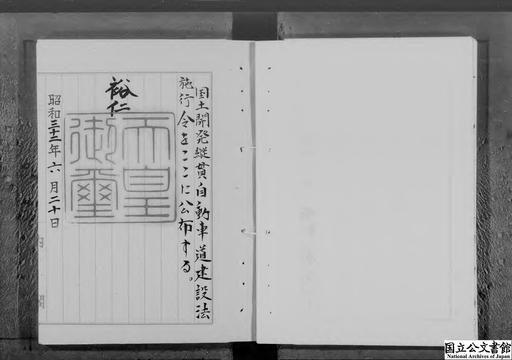 国土開発縦貫自動車道建設法
施行令をここに公布する。
裕仁
天皇
御璽
昭和三十二年六月二十日
国立公文書館
National Archives of Japan